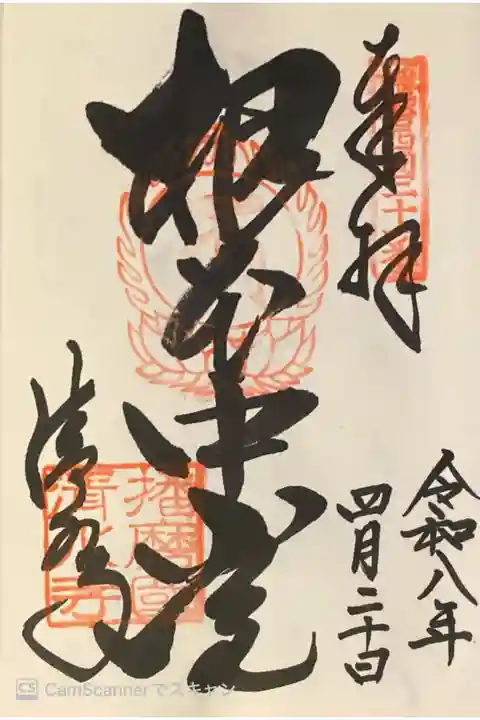 奉拝
令和八年
四月二十日
根本中堂
清水寺
播磨國
清水寺
CS CamScannerでスキャン